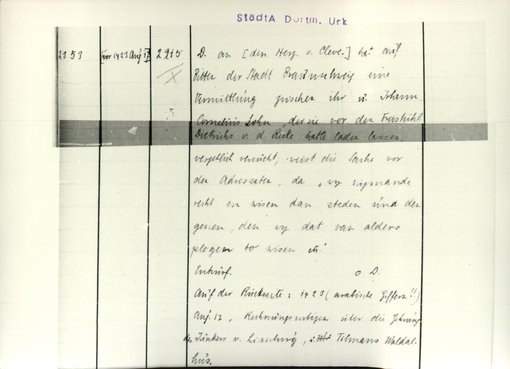 StadtA Dortm. Urk
2951 [vor 1423 Aug 17] 2915 D. an [den Herz. v. Cleve.] hat auf
Bitten der Stadt Braunschweig eine
Vermittlung zwischen ihr u Johann
Cornelius Sohn, der sie vor den Freistuhl
Dietrichs v. d. Recke hatte laden lassen,
vergeblich versucht, weist die Sache vor
den Adressaten, da "wy nymande
recht en wisen dan steden und den
genen, den wy dat van alders
plegen to wisen etc"
Entwurf. o. D.
Auf der Rückseite: 1423 (arabische Ziffern!!)
Aug 17, Rechnungsnotizen über die
des Junkers v. Limburg, Tilmans
hus.